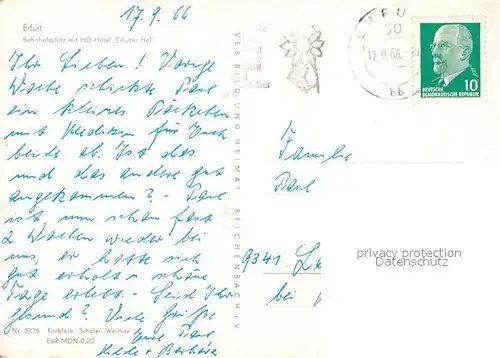 17.9.66
Erfurt
Bahnhofsplatz mit HO-Hotel „Erfurter Hof"
Ihr Lieben! Vorige
Woche schickte Paul
ein kleines Päckchen
mit Medizin für Euch
beide ab. Ist das
und das andere gut
angekommen? - Paul
ist nun schon fast
2 Wochen wieder bei
uns, er hatte sich
gut erholt u. schöne
Tage erlebt. - Seid Ihr
gesund? Viele Grüße
Eure Paul
Hilde + Barbara
Nr. 3276 Farbfoto: Schäfer, Weimar
EVP MDN 0,20
VEB BILD UND HEIMAT REICHENBACH I. V.
ERFU
50
17.9.66
bb
10
DEUTSCHE
DEMOKRATISCHE REPUBLIK
Familie
Paul
9341
bei
privacy protection
Datenschutz